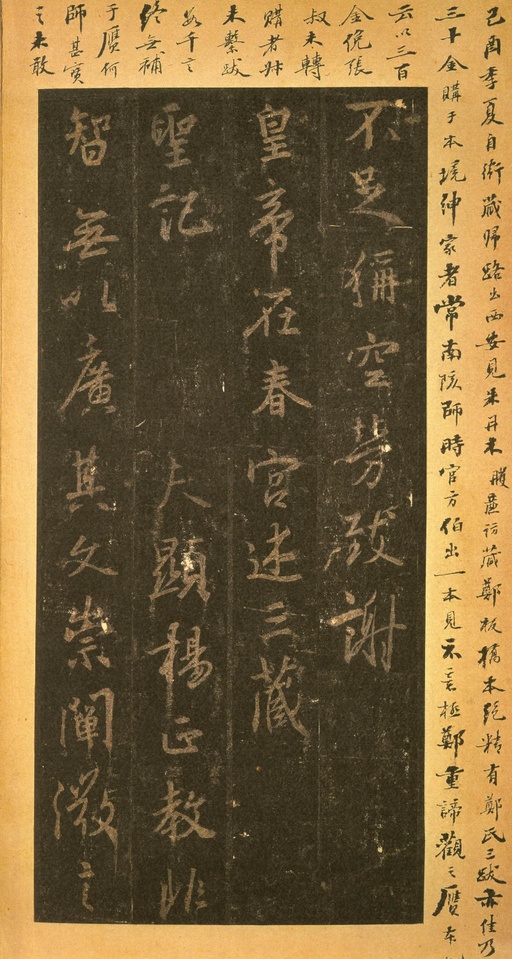 己酉季夏自衛藏歸路出西安見朱丹木贋蘆訪藏鄭板橋本絶精有鄭氏三跋亦佳乃
三千金購于本境紳家者常南陔師時官方伯出一本見示云極鄭重諦觀之贋本
云以三百
金従張
叔未轉
購者非
未繫跋
數千言
終無補
于贋何
師甚寳
之未敢
不足稱空勞致謝
皇帝在春宮述三藏
聖記
夫顯揚正教非
智無以廣其文崇闡微言